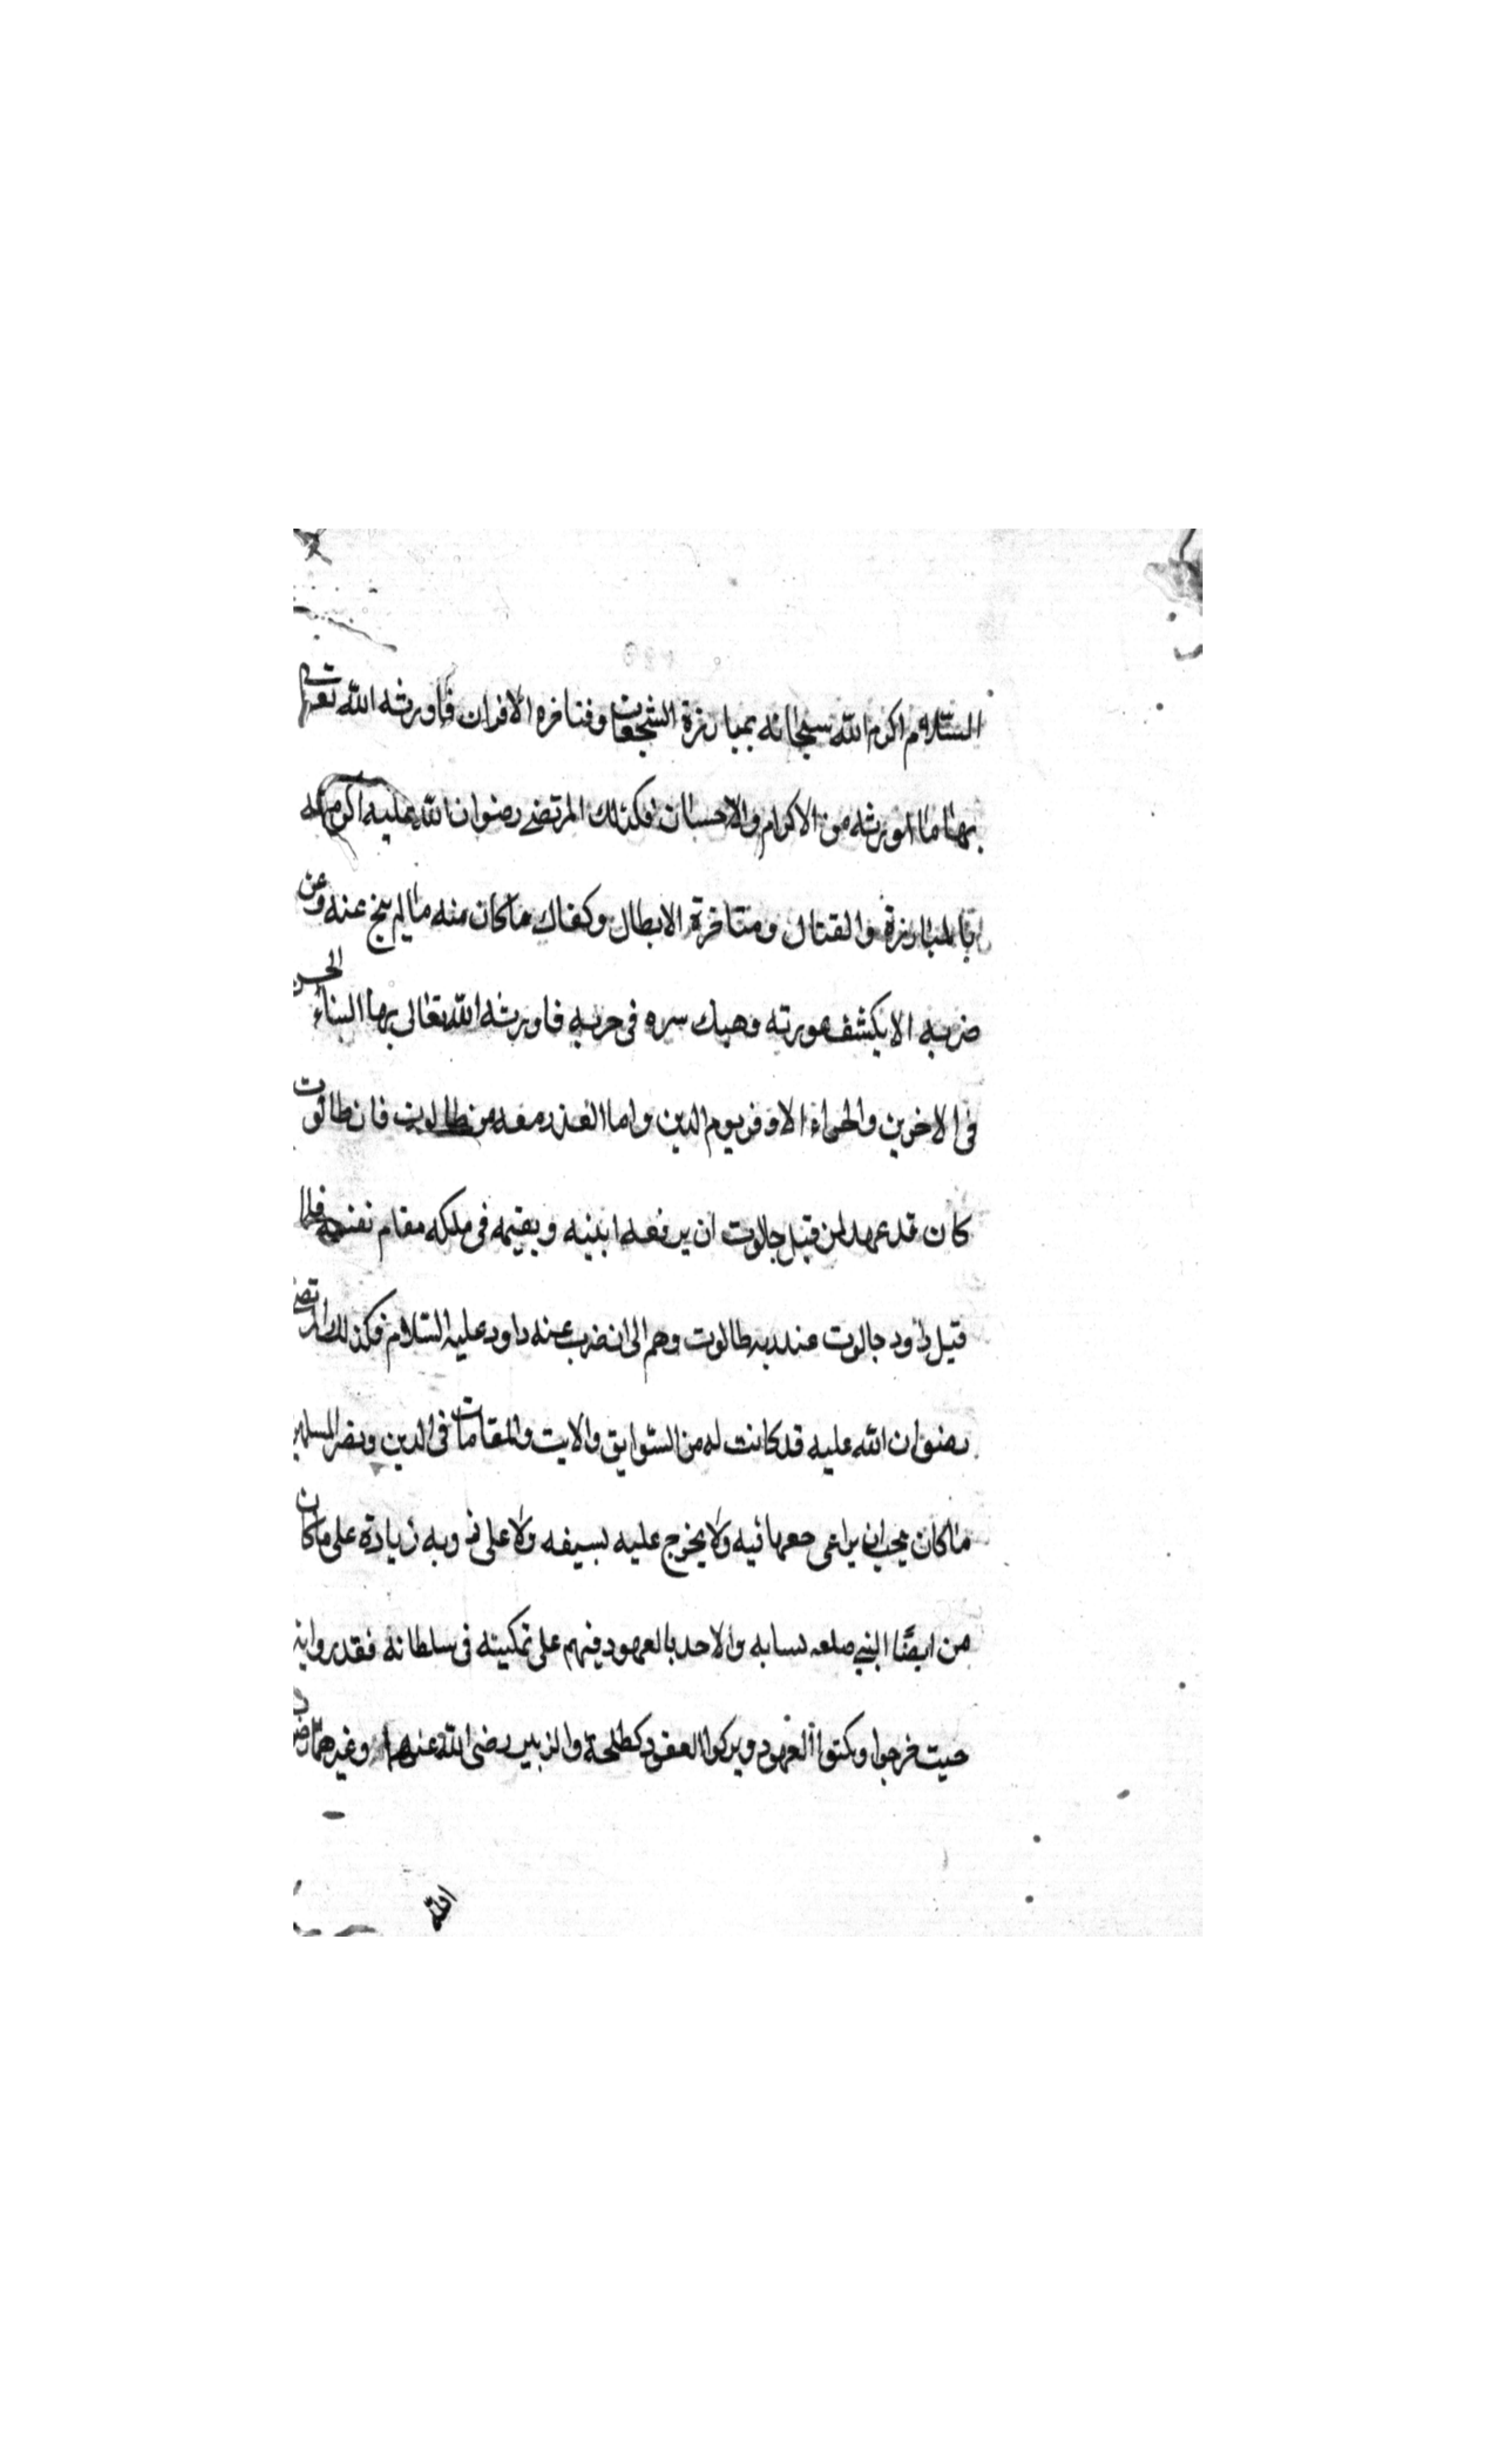 السلام اكرم الله سبحانه بمبارزة الشجعان وفتاخره الاقران فاورثه الله تعالى
بها ما اورثه من الاكرام والاحسان فكذلك المرتضى رضوان الله عليه اكرم الله
بالمبارزة والقتال ومتاخرة الابطال وكفاك ما كان منه ما لم ينج عنه وعن
ضربه الا بكشف عورته وهبك سره فى حربه فاورثه الله تعالى بها الثناء الحسن
فى الاخرين والجزاء الاوفر يوم الدين واما الغدر معه من طالوت فان طالوت
كان قد عهد لمن قتل جالوت ان يرفعه ابنيه ويقيمه فى ملكه مقام نفسه فلما
قتل داود جالوت عند به طالوت وهم الى ان ضرب عنه داود عليه السلام فكذلك المرتضى
رضوان الله عليه قد كانت له من السوابق والايت والمقامات فى الدين ونصر المسلمين
ما كان يجب ان يراعى حعها فيه ولا يخرج عليه بسيفه ولا على وبه زيادة على ما كان
من ايضا النبي صلعم والاحد بالعهود فيهم على تمكينه فى سلطانه فقد
حيت خرجوا ونكتوا العهود وتركوا العقود كطلحة والزبير رضى الله عنهما وغيرهما رضى
الله